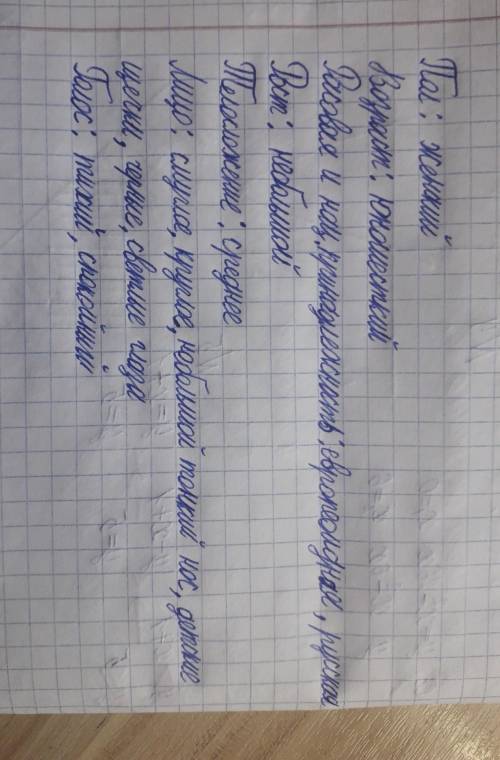 Пол: женский
Возраст: юношеский
Расовая и нац. принадлежность: европеоидная, русская
Рост: небольшой
Телосложение: среднее
Лицо: смуглое, круглое, небольшой тонкий нос, детские
щечки, светлые глаза
Голос: тихий, спокойный